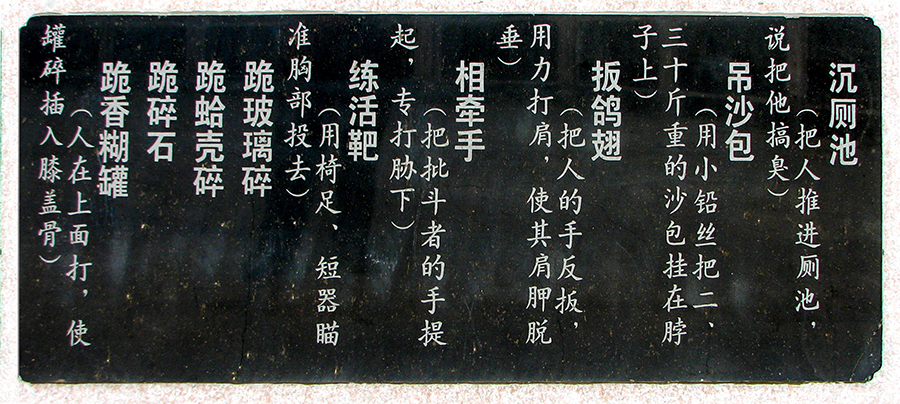 沉厕池
（把人推进厕池，
说把他搞臭）
吊沙包
（用小铅丝把二、
三十斤重的沙包挂在脖
子上）
扳鸽翅
（把人的手反扳，
用力打肩，使其肩胛脱
垂）
相牵手
（把批斗者的手提
起，专打胁下）
练活靶
（用椅足、短器瞄
准胸部投去）
跪玻璃碎
跪蛤壳碎
跪碎石
跪香糊罐
（人在上面打，使
罐碎插入膝盖骨）